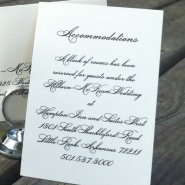 Accommodations
A block of rooms has been
reserved for guests under the
McKeen Wedding at
Hampton Inn and Suites West
1301 South Shackleford Road
Little Rock, Arkansas 72211
501-537-3000